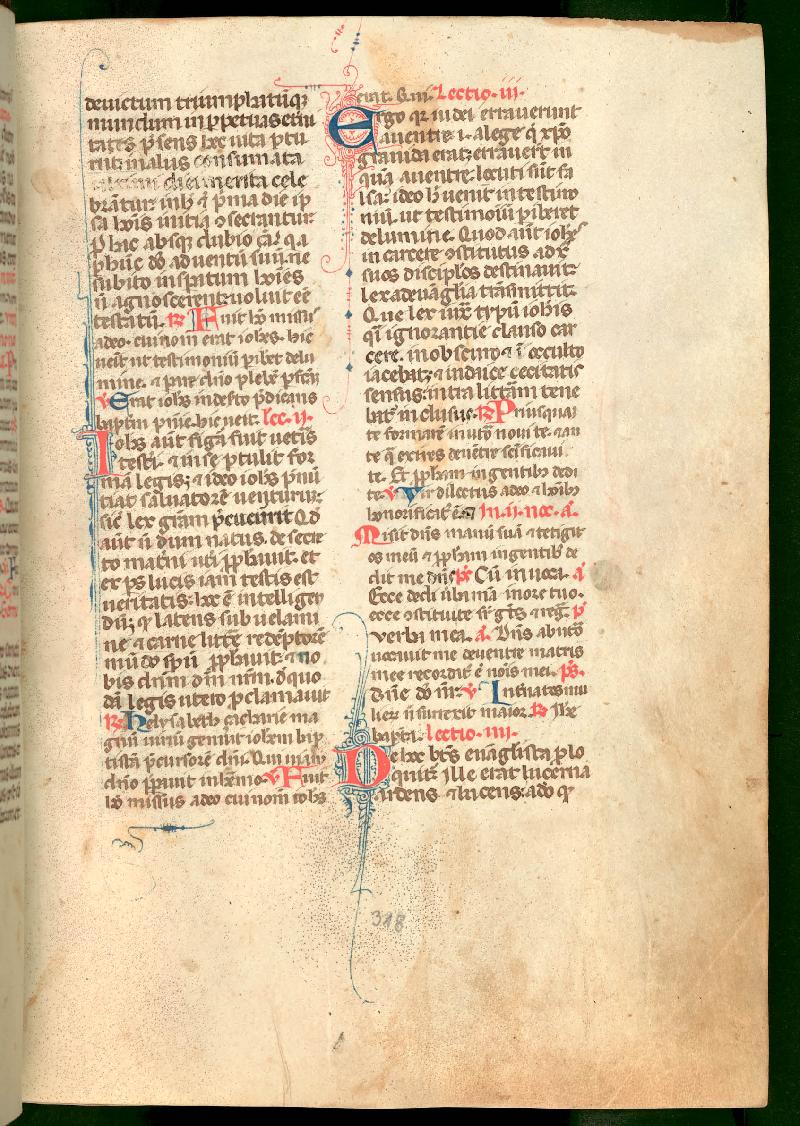 deuictum triumphatūq̄
mundum in ꝑpetuas etni
tates. p̄sens hec uita ꝑtu
rit malus consumata
diei merita cele
brātur in hͦ p̄ma die ip̄
sa hoīs initia ↄsecrantur
ꝑ hec absq; dubio q̄a
ꝑ huc dō aduentū suū. ne
subito insꝑatum hoīes
nͦ agnoscerent: uoluit eē
testatū. ℟ Fuit hō missꝰ
adeo. cui nom̄ erat iohes. hic
uenit ut testimoniū ꝑibet delu
mine. ⁊ parare dn̄o plebē ꝑfctā.
℣ Erat iohs in deserto p̄dicans
baptm̄ pnīe. hic uenit. lec. ij.
Iohs aūt figā fuit uetis
testi. ⁊ in se ꝓtulit for
mā legis; ⁊ ideo iohs p̄nū
tiat saluatorē uenturū:
sic lex gram p̄cucurrit Qd̄
aūt nͦ dum natus. de secre
to matris uti ꝓphauit. et
ex ꝑs lucis iam testis est
ueritatis: hec ē intelligen
dū; q latens sub uelami
ne ⁊ carne littē redēptorē
mūdo spū ꝓphauit: ⁊ no
bis dm̄ nr̄m. de quo
legis utero ꝓclamauit
℟ Helysabeth zacharie ma
gnū uirū genuit iohem bap
tistā p̄cursorē dn̄i. Qui uiam
dn̄o ꝑauit in hemo. ℣ Fuit
hō missus adeo cui nom̄ iohs
erat. Q̄ ui. Lectio. iij.
Ergo qr iudei errauerunt
auentre i. alege q̄ xp̄o
grauida erat: errauert in
quā auentre. locuti sūt fa
lsa: ideo h̄ uenit in testimo
niū. ut testimoiū ꝑiberet
de lumine. Quod aūt iohs
in carcere ↄstitutus ad xp̄
suos disciplos destinauit:
lex ad euāglia trāsmittit.
Que lex iux typū iohis
q̄i ignorantie clauso car
cere. in obscuro ⁊ ī occulto
iacebat; ⁊ iudaice cecitatis
sensus. intra littām tene
bat inclusus. ℟ Priusquā
te formarē in utō noui te. ⁊ an
te q̄ exires deuētre scīficaui
te. Et ꝓpham in gentibꝰ dedi
te. ℣ Vir dilectus adeo ⁊ hoībꝫ
honorificatꝰ ē. In. ij. noc. a.
Misit dn̄s manū suā ⁊ tetigit
os meū ⁊ ꝓpham in gentibꝰ de
dit me dn̄s. ps̄ Cū inuoca. a
Ecce dedi ūba mea in ore tuo.
ecce ↄstitui te sr̄ gt̄s ⁊ reg. p
Verba mea. a. Dn̄s ab utō
uocauit me de uentre matris
mee recordatꝰ ē noīs mei. ps̄.
Dn̄e dō nr̄. ℣ Int̄ natos mu
lieꝝ nͦ surrexit maior. ℟ Iohe
bapta. Lectio. iiij.
De hoc bt̄s euāglista ꝑ lo
quit᷑. Ille erat lucerna
ardens ⁊ lucens: ado q̄
318